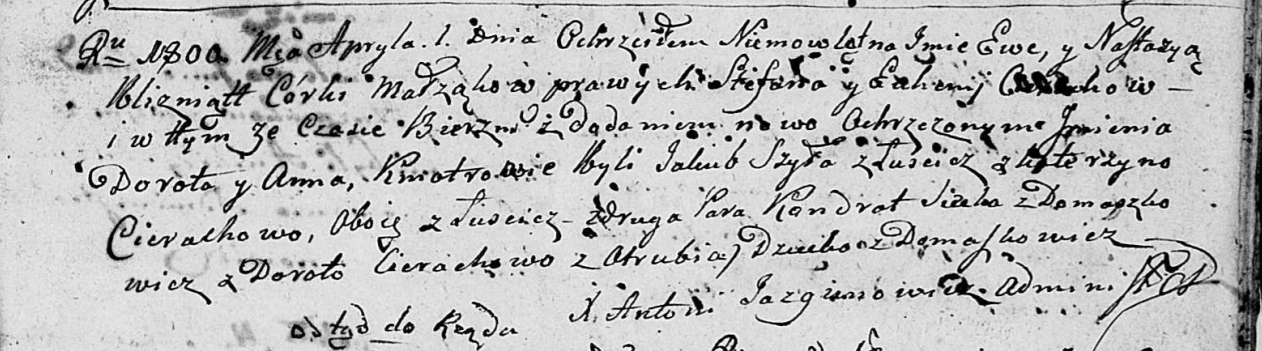 Ru 1800 Mca Apryla. 1. Dnia Ochrzciłem Niemowlęt na Imie Ewe, y Nastazyą
Blizniątt Corki Małżąkow prawych Stefana y
i w ttym że Czasie Bierzm: z dodaniem nowo Ochrzczonym Imienia
Dorota y Anna, Kmotrowie Byli Jakub Szyła z Łuscicz z Katerzyno
Cierachowo, Oboię z Łuscicz - z druga Para Kondrat z Domaszko
wicz z Doroto Cierachowo z Otrubia) z Domaszkowicz
X. Antoni Jazgunowicz Admini
odtąd do Rządu